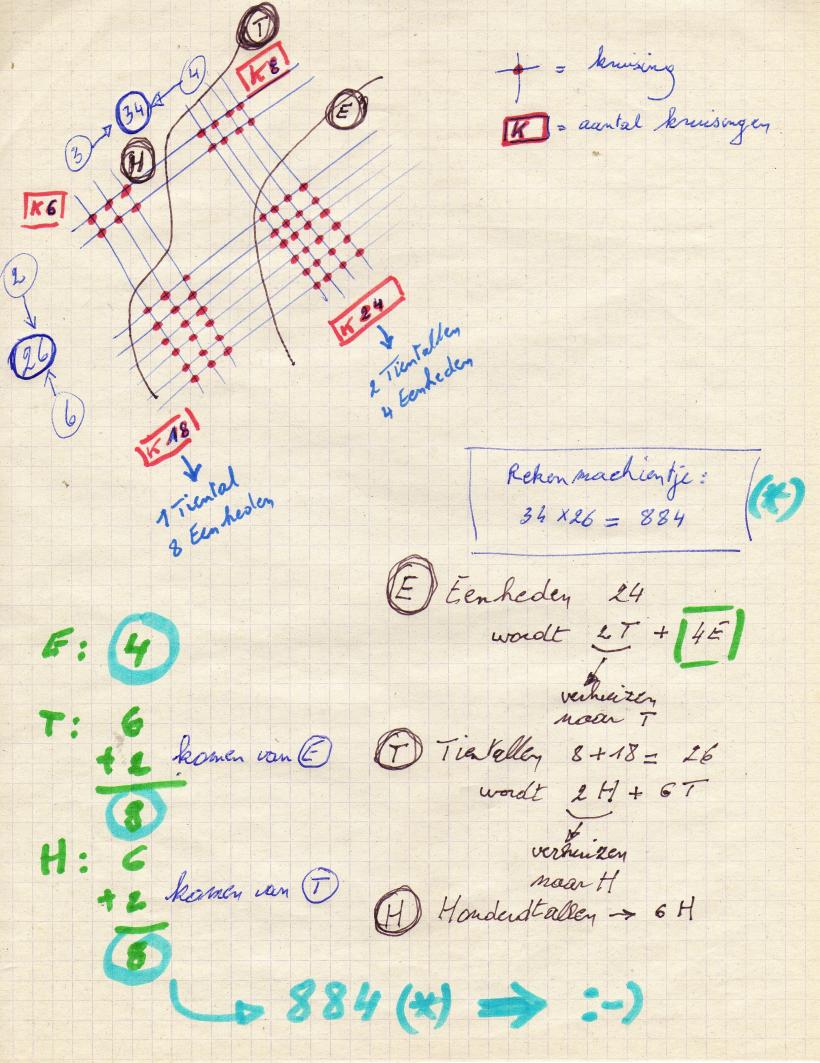 T
K 8
4
34
3
H
E
= kruising
K = aantal kruisingen
K 6
2
26
6
K 24
2 Tientallen
4 Eenheden
K 18
1 Tiental
8 Eenheden
Rekenmachientje:
34 x 26 = 884
(*)
E Eenheden 24
wordt 2T + 4E
verhuizen
naar T
T Tientallen 8+18 = 26
wordt 2 H + 6 T
verhuizen
naar H
H Honderdtallen → 6 H
E: 4
T: 6
+ 2 komen van E
8
H: 6
+ 2 komen van T
8
884 (*) ⇒ :-)